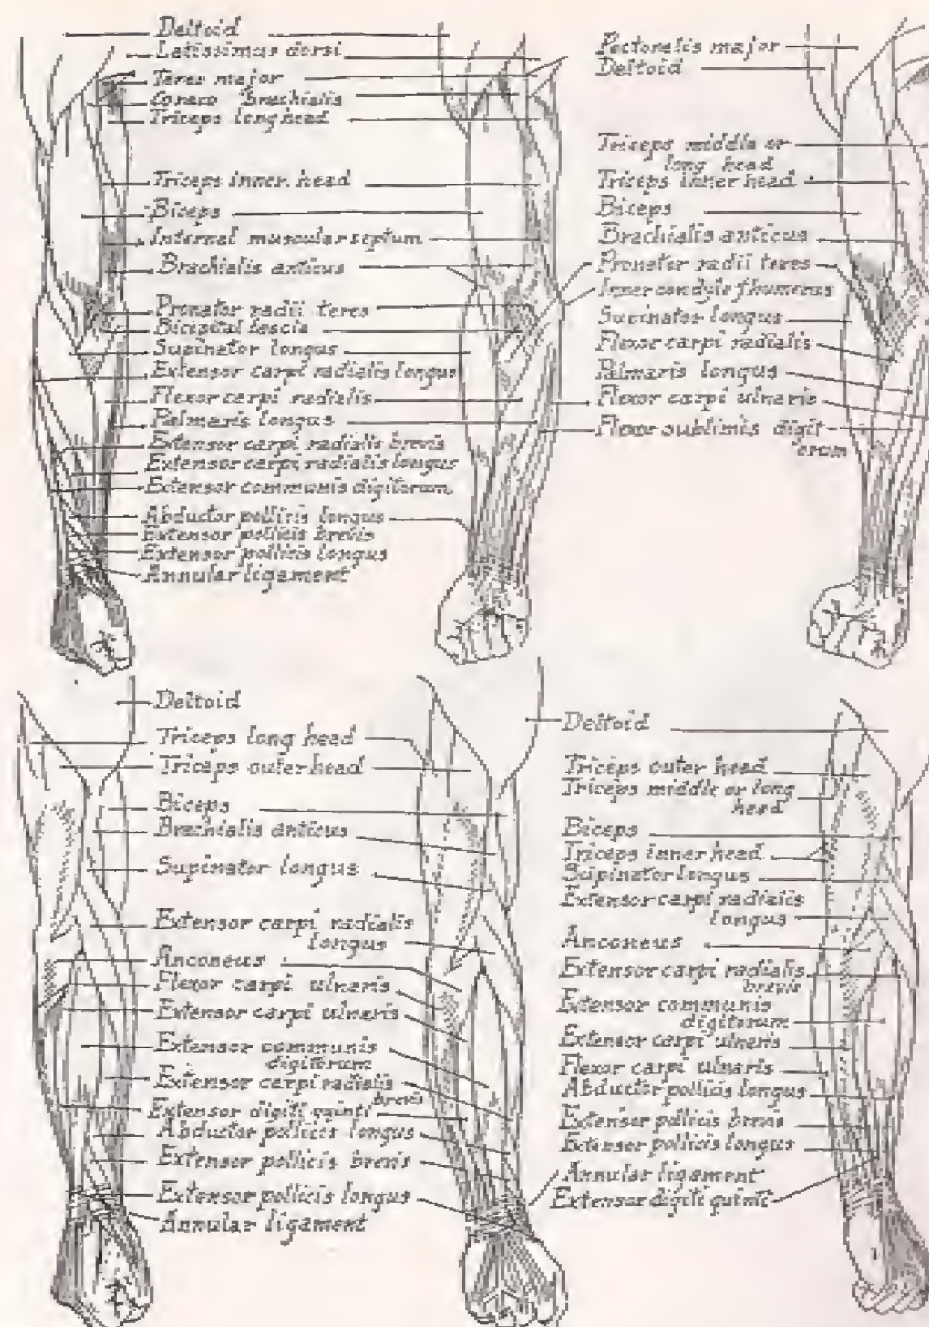 Deltoid
Latissimus dorsi
Teres major
Coraco brachialis
Triceps long head
Triceps inner head
Biceps
Internal muscular septum
Brachialis anticus
Pronator radii teres
Bicipital fascia
Supinator longus
Extensor carpi radialis longus
Flexor carpi radialis
Palmaris longus
Extensor carpi radialis brevis
Extensor carpi radialis longus
Extensor communis digitorum
Abductor pollicis longus
Extensor pollicis brevis
Extensor pollicis longus
Annular ligament
Pectoralis major
Deltoid
Triceps middle or
long head
Triceps inner head
Biceps
Brachialis anticus
Pronator radii teres
Inner condyle f humerus
Supinator longus
Flexor carpi radialis
Palmaris longus
Flexor carpi ulnaris
Flexor sublimis digit
orum
Deltoid
Triceps long head
Triceps outer head
Biceps
Brachialis anticus
Supinator longus
Extensor carpi radialis
longus
Anconeus
Flexor carpi ulnaris
Extensor carpi ulnaris
Extensor communis
digitorum
Extensor carpi radialis
brevis
Extensor digiti quinti
Abductor pollicis longus
Extensor pollicis brevis
Extensor pollicis longus
Annular ligament
Deltoid
Triceps outer head
Triceps middle or long
head
Biceps
Triceps inner head
Supinator longus
Extensor carpi radialis
longus
Anconeus
Extensor carpi radialis
brevis
Extensor communis
digitorum
Extensor carpi ulnaris
Flexor carpi ulnaris
Abductor pollicis longus
Extensor pollicis brevis
Extensor pollicis longus
Annular ligament
Extensor digiti quinti